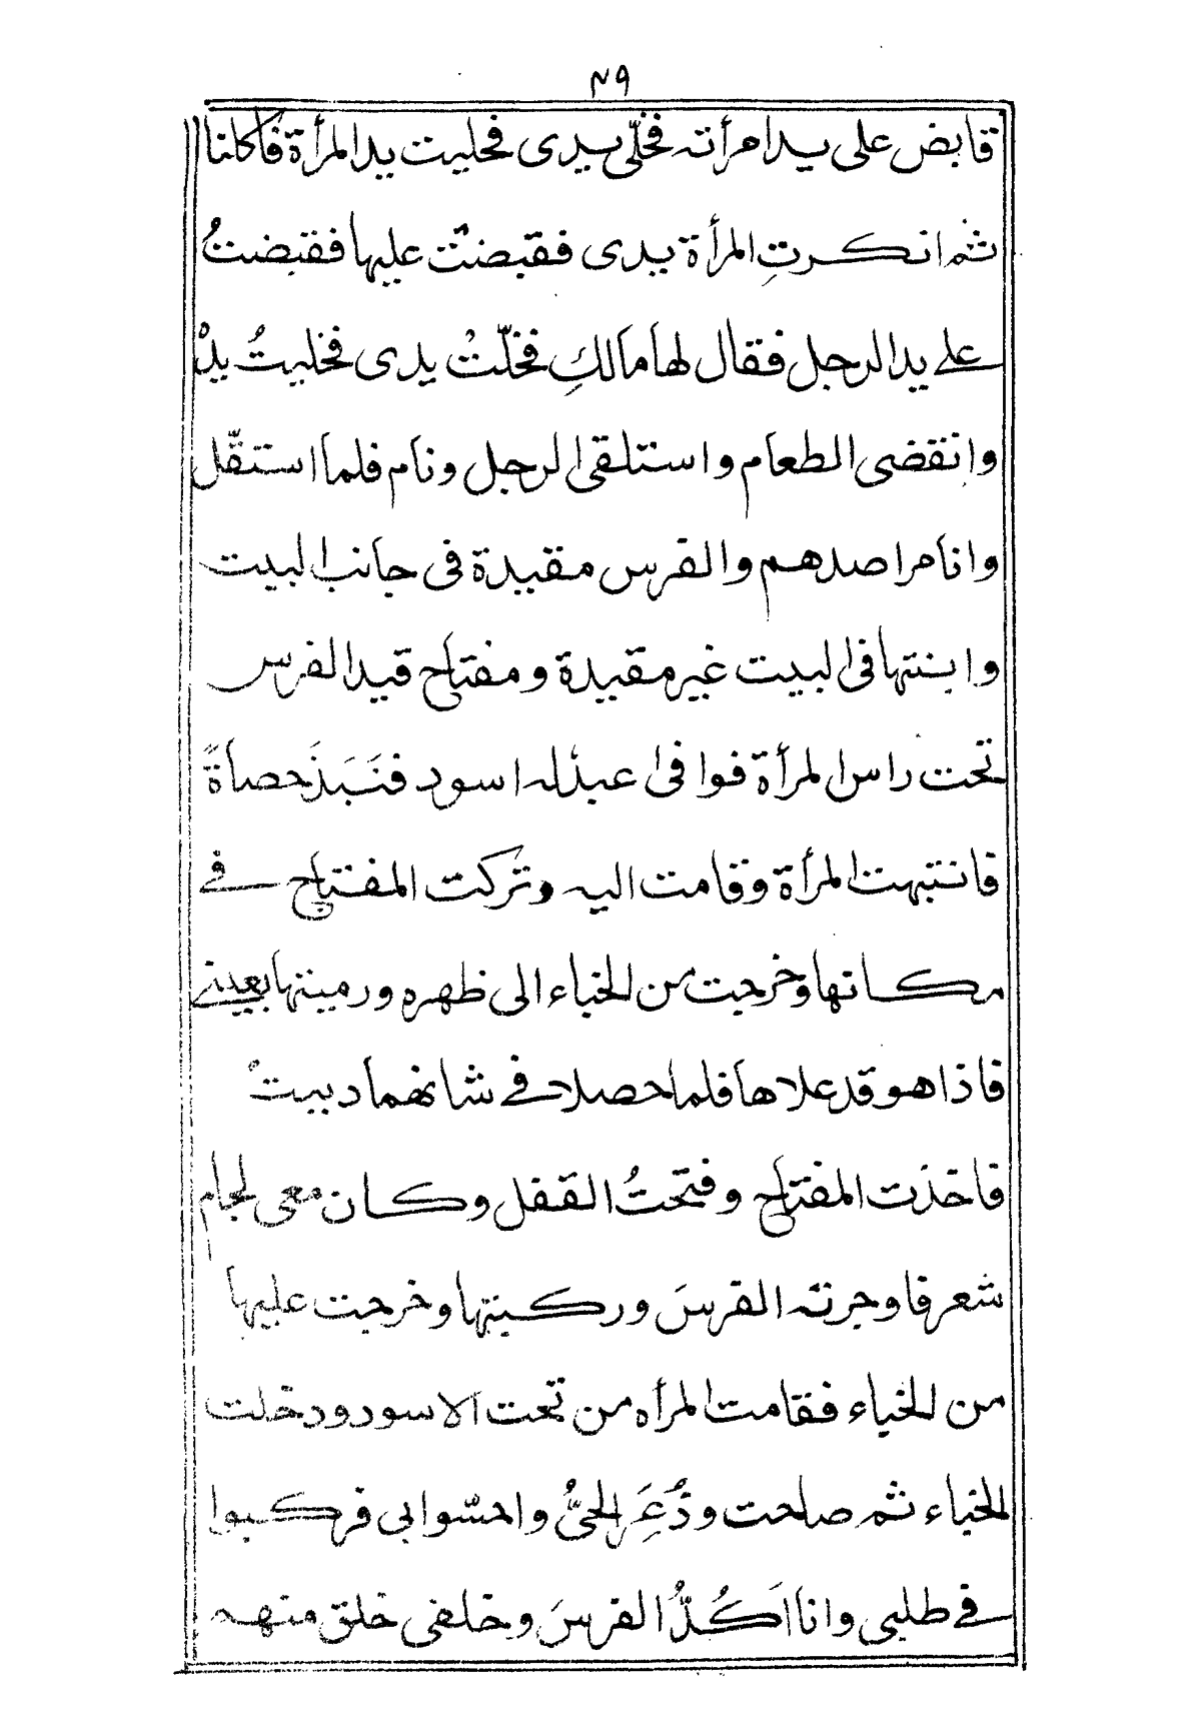 ٤٩
قابض على يد امرأته فخلّى يدى فخليت يد المرأة فأكلنا
ثم انكرتِ المرأة يدى فقبضت عليها فقبضتُ
على يد الرجل فقال لها مالكِ فخلّتْ يدى فخليتُ يدْ
وانقضى الطعام واستلقى الرجل ونام فلما استقّل
وانا مراصدهم والفرس مقيدة فى جانب البيت
وابنتها فى البيت غير مقيدة ومفتاح قيد الفرس
تحت راس المرأة فوافى عبدٌ له اسود فنَبَذَ حصاةً
فانتبهت المرأة وقامت اليه وتركت المفتاح فى
مكانها وخرجت من الخباء الى ظهره ورميتها بعينى
فاذا هو قد علاها فلما حصلا فى شانهما دببتُ
فاخذت المفتاح وفتحتُ القفل وكان معى لجام
شعر فاوجرته الفرسَ وركبتها وخرجت عليها
من الخباء فقامت المرأه من تحت الاسود ودخلت
الخباء ثم صاحت وذُعِرَ الحىُّ واحسّوا بى فركبوا
فى طلبى وانا اَكُدُّ الفرسَ وخلفى خلق منهم